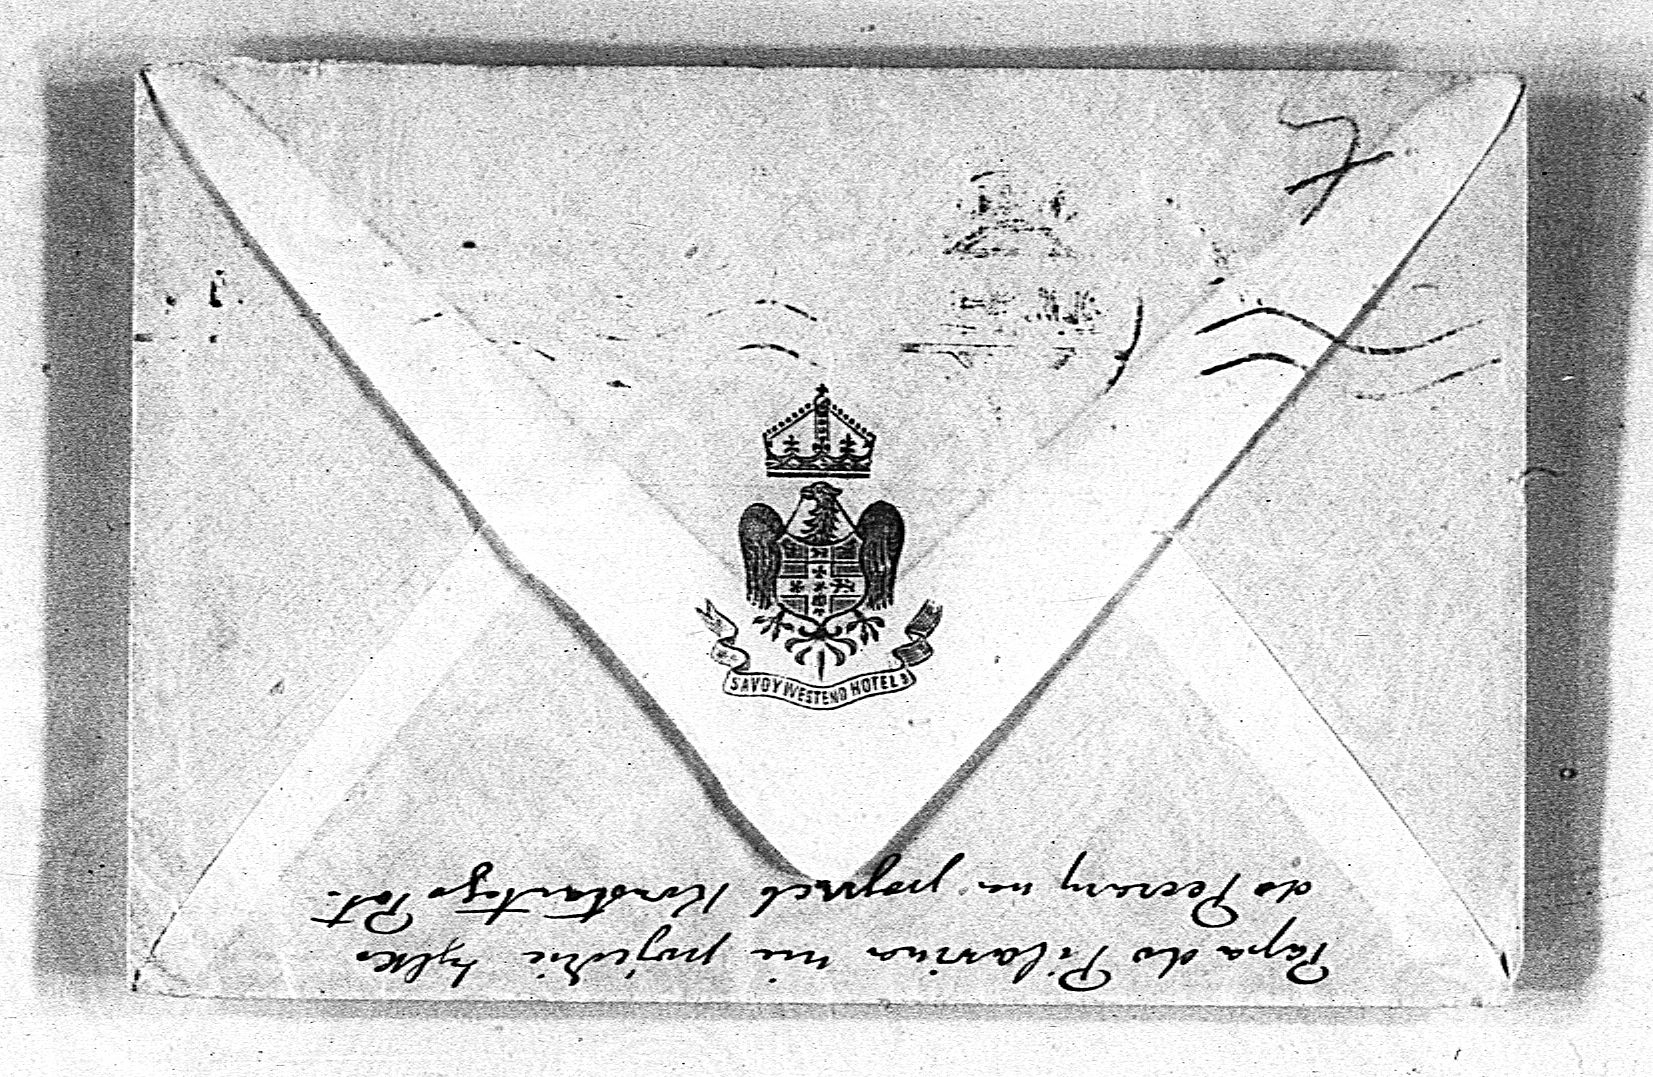 SAVOY WESTEND HOTEL
Papa do Pilawina nie pojedzie tylko
do Peczary na pogrzeb Konstantego Pot.